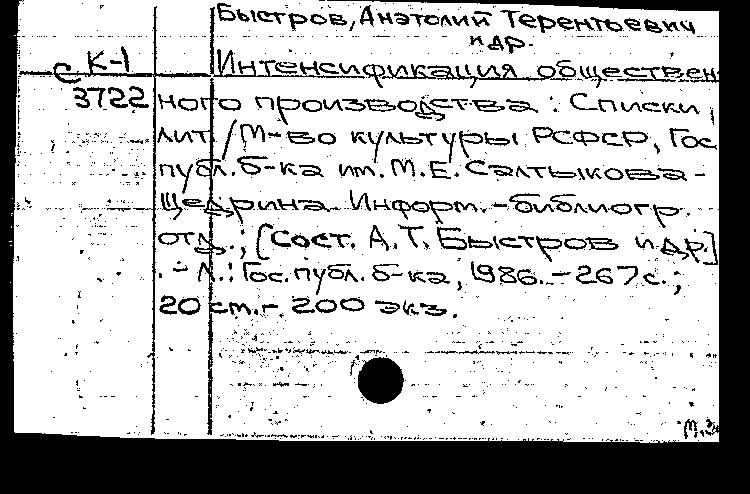 Быстров, Анатолий Терентьевич
и др.
С К-1
Интенсификация обществен
3722
ного производства : Списки
лит. / М-во культуры РСФСР, Гос.
публ. б-ка им. М.Е. Салтыкова-
Щедрина. Информ.-библиогр.
отд. ; [Сост. А.Т. Быстров и др.]
. - Л. : Гос. публ. б-ка, 1986. - 267 с. ;
20 см. - 200 экз.